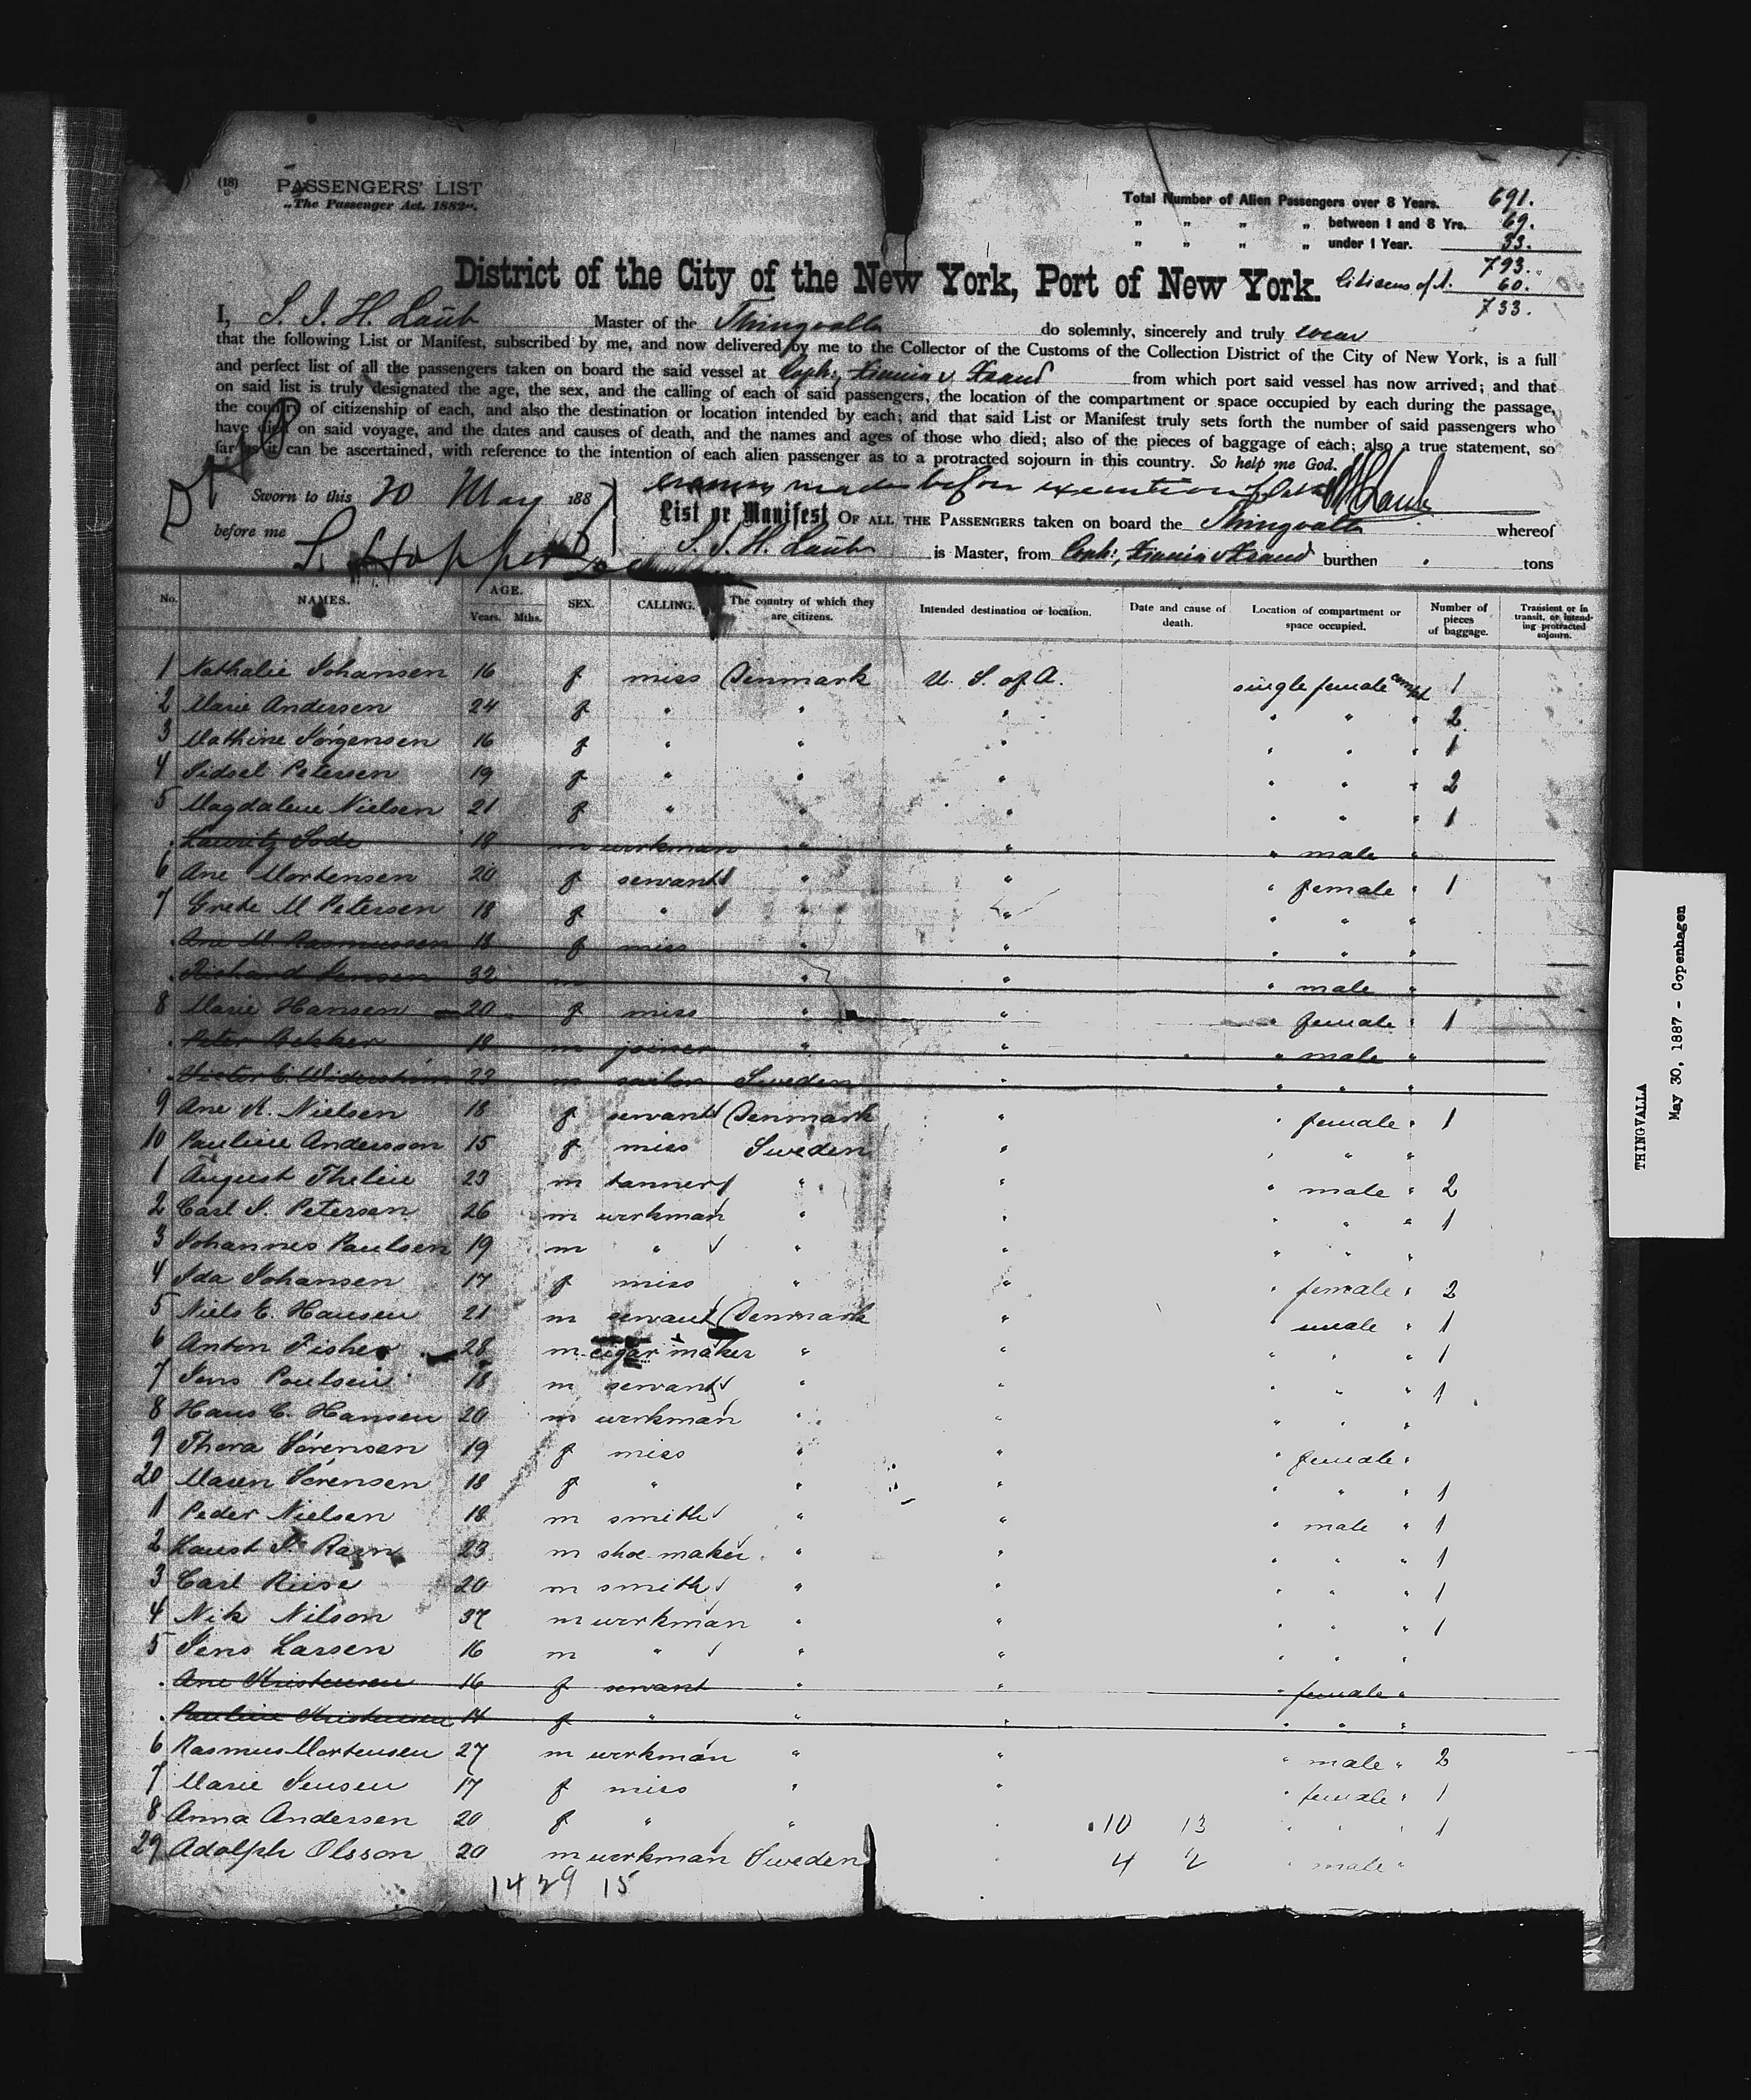 (18)
PASSENGERS' LIST
„The Passenger Act. 1882".
Total Number of Alien Passengers over 8 Years. 691.
„ „ „ „ between 1 and 8 Yrs. 69.
„ „ „ „ under 1 Year. 33.
793.
Citizens of A. 60.
733.
District of the City of the New York, Port of New York.
I, S. J. H. Laub Master of the Thingvalla do solemnly, sincerely and truly swear
that the following List or Manifest, subscribed by me, and now delivered by me to the Collector of the Customs of the Collection District of the City of New York, is a full
and perfect list of all the passengers taken on board the said vessel at Coph:, Xiania v. Xsand from which port said vessel has now arrived; and that
on said list is truly designated the age, the sex, and the calling of each of said passengers, the location of the compartment or space occupied by each during the passage,
the country of citizenship of each, and also the destination or location intended by each; and that said List or Manifest truly sets forth the number of said passengers who
have died on said voyage, and the dates and causes of death, and the names and ages of those who died; also of the pieces of baggage of each; also a true statement, so
far as it can be ascertained, with reference to the intention of each alien passenger as to a protracted sojourn in this country. So help me God.
Sworn to this 30 May 188
made before execution
before me
List or Manifest OF ALL THE PASSENGERS taken on board the Thingvalla whereof
S. J. H. Laub is Master, from Coph:, Xiania v Xsand burthen tons
No. NAMES. AGE. Years. Mths. SEX. CALLING. The country of which they are citizens. Intended destination or location. Date and cause of death. Location of compartment or space occupied. Number of pieces of baggage. Transient or in transit, or intending protracted sojourn.
1 Nathalie Johansen 16 f miss Denmark U. S. of A. single female compt 1
2 Marie Andersen 24 f " " " " " " 2
3 Mathine Jörgensen 16 f " " " " " " 1
4 Sidsel Petersen 19 f " " " " " " 2
5 Magdalene Nielsen 21 f " " " " " " 1
. Lauritz Sode 18 m workman " " " male "
6 Ane Mortensen 20 f servant " " " female " 1
7 Grete M Petersen 18 f " " " " " "
. Ane M. Rasmussen 18 f miss " " " " "
. Richard Jensen 32 m " " " male "
8 Marie Hansen 20 f miss " " " female " 1
. Peter Bekker 18 m joiner " " " male "
. 23 m sailor Sweden " " " "
9 Ane K. Nielsen 18 f servant Denmark " " female " 1
10 Pauline Andersson 15 f miss Sweden " " " "
1 August Thelin 23 m tanner " " " male " 2
2 Carl J. Petersen 26 m workman " " " " " 1
3 Johannes Paulsen 19 m " " " " " "
4 Ida Johansen 17 f miss " " " female " 2
5 Niels C. Hansen 21 m servant Denmark " " male " 1
6 Anton Fisher 28 m cigar maker " " " " " 1
7 Jens Poulsen 18 m servant " " " " " 1
8 Hans C. Hansen 20 m workman " " " " "
9 Thora Sörensen 19 f miss " " " female "
20 Maren Sörensen 18 f " " " " " " 1
1 Peder Nielsen 18 m smith " " " male " 1
2 Knust J. Ravn 23 m shoe maker " " " " " 1
3 Carl Riise 20 m smith " " " " " 1
4 Nik Nilson 37 m workman " " " " " 1
5 Jens Larsen 16 m " " " " " "
. Ane Kristensen 16 f servant " " " female "
. Pauline Kristensen 14 f " " " " " "
6 Rasmus Mortensen 27 m workman " " " male " 2
7 Marie Jensen 17 f miss " " " female " 1
8 Anna Andersen 20 f " " " 10 13 " " " 1
29 Adolph Olsson 20 m workman Sweden " 4 2 " male "
14 29 15
THINGVALLA
May 30, 1887 - Copenhagen